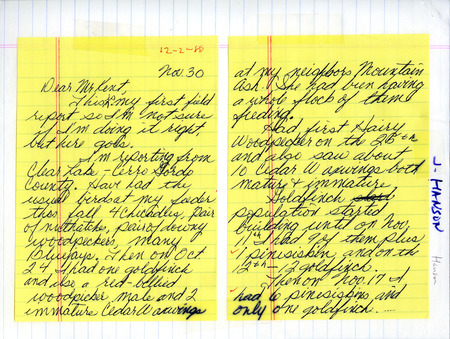 12-2-80
Nov. 30
Dear Mr Kent,
This is my first field
report so I'm not sure
if I'm doing it right
but here goes.
I'm reporting from
Clear Lake - Cerro Gordo
County. Have had the
usual birds at my feeder
this fall 4 chicadees, pair
of nuthatches, pair of downy
woodpeckers, many
Bluejays. Then on Oct
24 I had one goldfinch
and also a red-bellied
woodpecker male and 2
immature Cedar Waxwings
at my neighbors Mountain
Ash. She had been having
a whole flock of them
feeding.
Had first Hairy
Woodpecker on the
and also saw about
10 Cedar Waxwings both
mature & immature
Goldfinch
population started
building until on Nov.
11th I had 7 of them plus
1 pinesiskin, and on the
12th - 12 goldfinch.
Then on Nov. 17 I
had 6 pinesiskins and
only one goldfinch....
J. HANSON